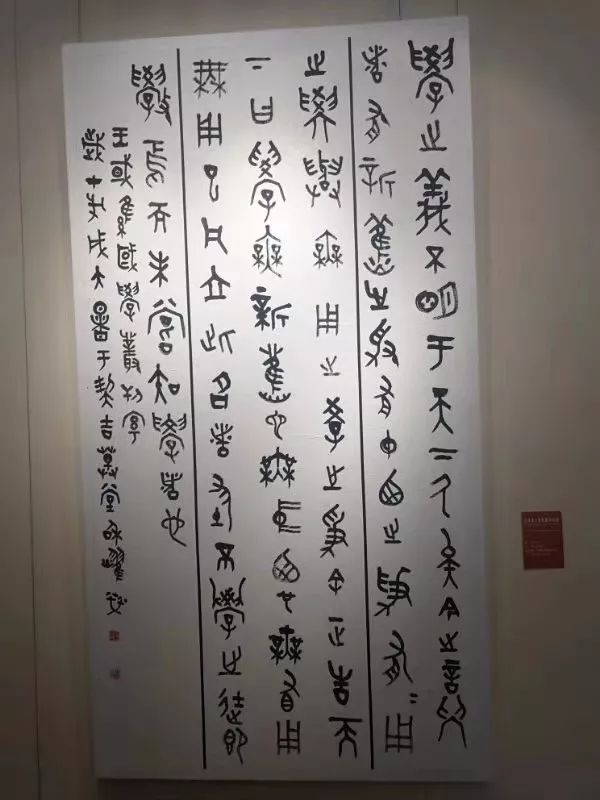 學之義不明于天下久矣今之言學
者有新舊之爭有中西之爭有有用
之學與無用之學之爭余正告天
下曰學無新舊也無中西也無有用
無用也凡立此名者均不學之徒即
學焉而未嘗知學者也
王國維國學叢刊序
歲大暑于契吉萬堂